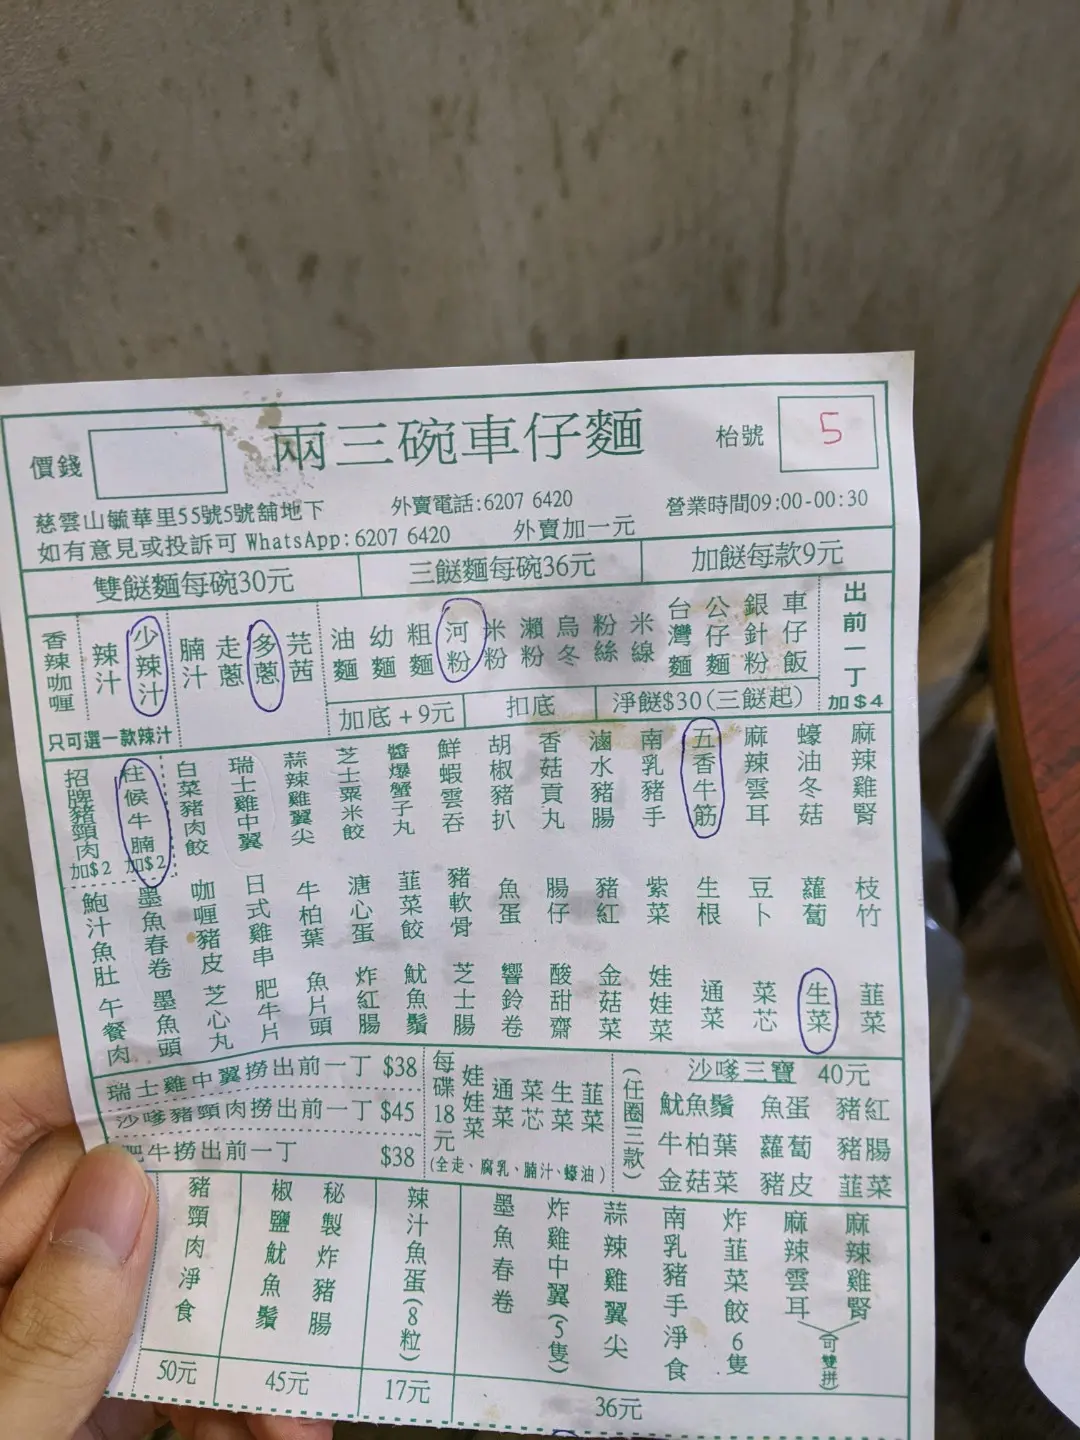 價錢
兩三碗車仔麵
枱號 5
慈雲山毓華里55號5號舖地下
外賣電話:6207 6420
營業時間09:00-00:30
如有意見或投訴可 WhatsApp: 6207 6420
外賣加一元
雙餸麵每碗30元
三餸麵每碗36元
加餸每款9元
香辣咖喱
辣汁
少辣汁
只可選一款辣汁
腩汁
走蔥
多蔥
芫茜
油麵
幼麵
粗麵
河粉
米粉
瀨粉
烏冬
粉絲
米線
台灣麵
公仔麵
銀針粉
車仔飯
出前一丁
加$4
加底+9元
扣底
淨餸$30(三餸起)
招牌豬頸肉
加$2
柱候牛腩
加$2
白菜豬肉餃
瑞士雞中翼
蒜辣雞翼尖
芝士粟米餃
醬爆蟹子丸
鮮蝦雲吞
胡椒豬扒
香菇貢丸
滷水豬腸
南乳豬手
五香牛筋
麻辣雲耳
蠔油冬菇
麻辣雞腎
鮑汁魚肚
墨魚春卷
咖喱豬皮
日式雞串
牛柏葉
溏心蛋
韮菜餃
豬軟骨
魚蛋
腸仔
豬紅
紫菜
生根
豆卜
蘿蔔
枝竹
午餐肉
墨魚頭
芝心丸
肥牛片
魚片頭
炸紅腸
魷魚鬚
芝士腸
響鈴卷
酸甜齋
金菇菜
娃娃菜
通菜
菜芯
生菜
韮菜
瑞士雞中翼撈出前一丁 $38
沙嗲豬頸肉撈出前一丁 $45
肥牛撈出前一丁 $38
每碟18元
娃娃菜
通菜
菜芯
生菜
韮菜
(全走、腐乳、腩汁、蠔油)
(任圈三款)
沙嗲三寶 40元
魷魚鬚 魚蛋 豬紅
牛柏葉 蘿蔔 豬腸
金菇菜 豬皮 韮菜
豬頸肉淨食
50元
椒鹽魷魚鬚
秘製炸豬腸
45元
辣汁魚蛋(8粒)
17元
墨魚春卷
炸雞中翼(5隻)
蒜辣雞翼尖
南乳豬手淨食
炸韮菜餃6隻
麻辣雲耳
麻辣雞腎
(可雙拼)
36元